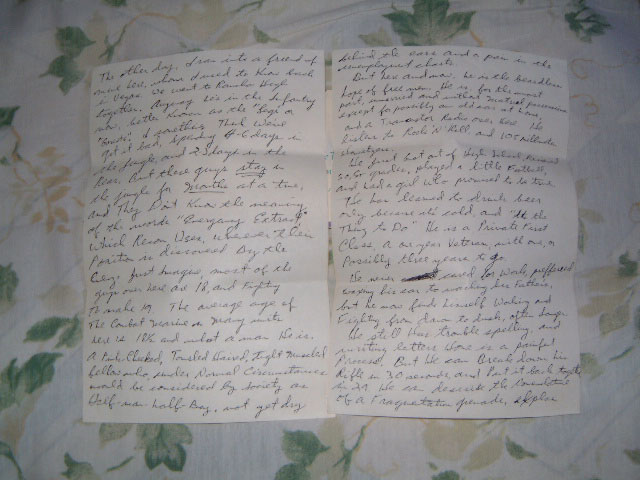 The other day, I ran into a friend of
mine here, whom I used to know back
in Vegas. We went to Rancho High
together. Anyway he's in the Infantry
now, better known as the "Pogi's or
"Grunts" or something. Think we've
got it bad, Spending 4-6 days in
the jungle, and 2-3 days in the
Rear, But these guys stay in
the jungle for months at a time,
and They Don't Know the meaning
of the words "Emergency Extract"
Which Recon Uses, whenever their
Position is discovered By the
Enemy. Just Imagine, most of the
guys over here are 18, and Fighting
To make 19. The average age of
The Combat Marine in many units
here is 18½ and what a man He is.
A Pink Cheeked, Tousled Haired, Tight Muscled
fellow who, under Normal Circumstances
would be considered by Society as
Half-man half-Boy, not yet dry
behind the ears and a pain in the
unemployment charts.
But here and now, he is the beardless
hope of free men. He is for the most
part, unmarried and without material possessions
except for possibly an old car at home,
and a Transistor Radio over here. He
listens to Rock 'N' Roll and 105 millimeter
Howitzers.
He just got out of High School, Received
so so grades, played a little Football,
and had a girl who promised to be true.
He has learned to drink beer
only because its cold, and "It's the
Thing to Do" He is a Private First
Class, a one year Veteran, with one, or
Possibly three years to go.
He never cared for Work, preffered
waxing his car to washing his Fathers,
but he now finds himself Working and
Fighting from dawn to dusk, often longer.
He still Has trouble spelling, and
writing letters Home is a painful
Process. But He can Break down his
Rifle in 30 seconds and Put it back together
in 29. He can describe the
of a Fragmentation grenade, explain